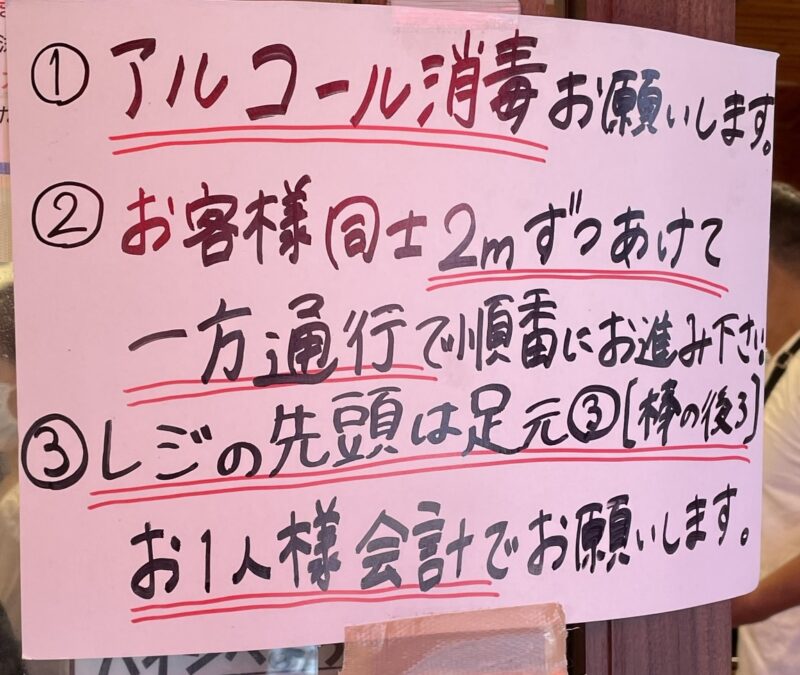 ① アルコール消毒お願いします。
② お客様同士2mずつあけて
一方通行で順番にお進み下さい。
③ レジの先頭は足元③[棒の後ろ]
お1人様会計でお願いします。